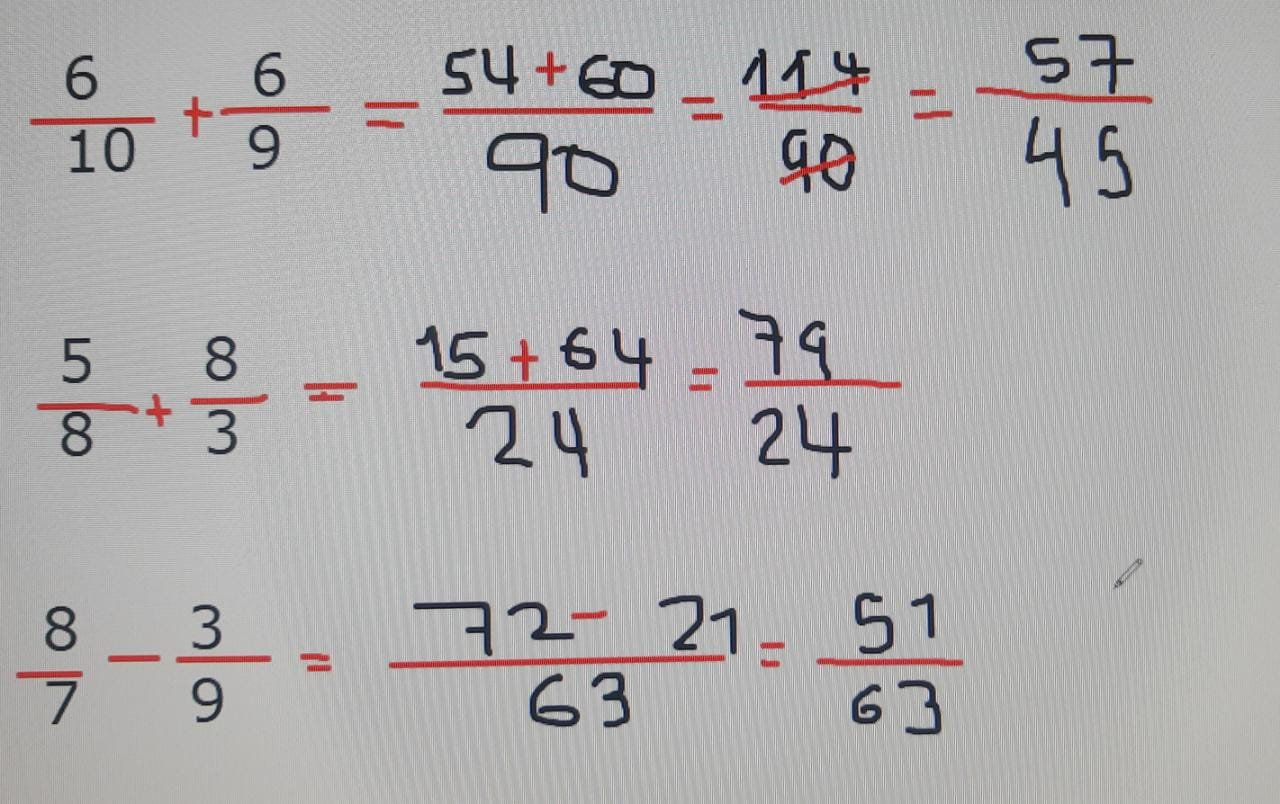 6/10 + 6/9 = (54 + 60)/90 = 114/90 = 57/45
5/8 + 8/3 = (15 + 64)/24 = 79/24
8/7 - 3/9 = (72 - 21)/63 = 51/63